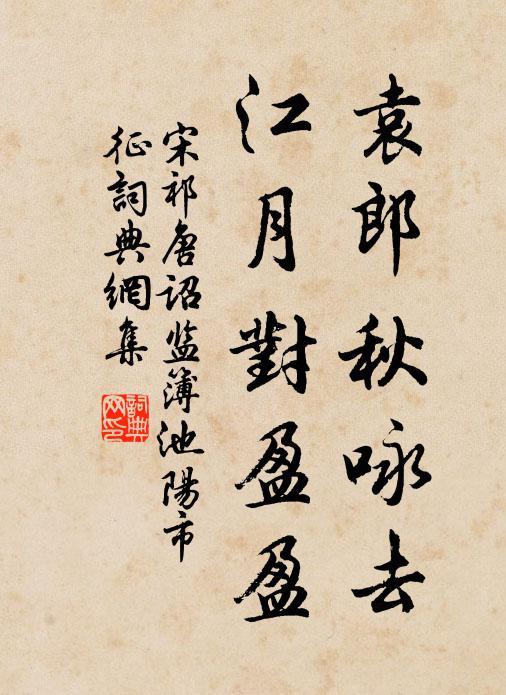 袁郎秋咏去
江月對盈盈
宋祁唐詔监簿池陽市
征詞典網集
詞典网印